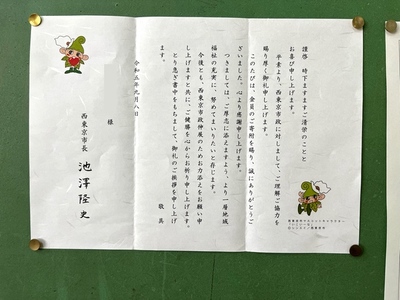 謹啓　時下ますますご清栄のことと
お喜び申し上げます。
平素より、西東京市政に対しまして、ご理解ご協力を
賜り厚く御礼申し上げます。
このたびは、金員のご寄附を賜り、誠にありがとうご
ざいました。心より感謝申し上げます。
つきましては、ご厚志に添えますよう、より一層地域
福祉の充実に、努めてまいりたいと存じます。
今後とも、西東京市政伸展のためお力添えをお願い申
し上げますと共に、ご健勝を心からお祈り申し上げます。
とり急ぎ書中をもちまして、御礼のご挨拶を申し上げ
ます。
敬具
令和五年九月八日
様
西東京市長
池澤隆史